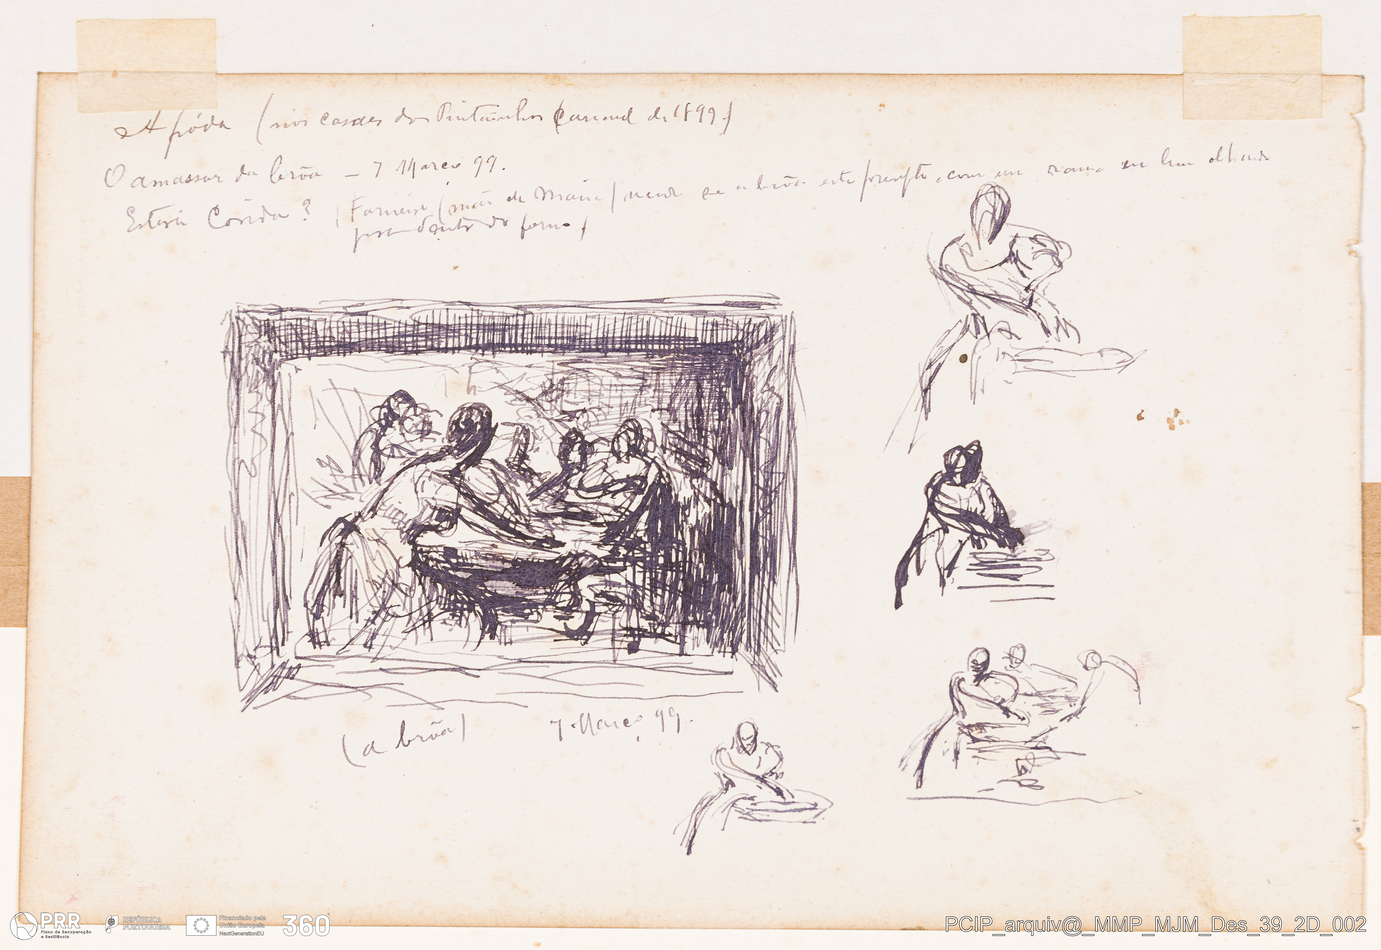 A fióda (nos casaes dos Pintainhos Carnaval de 1899.)
O amassar da brôa – 7 Março 99.
Estará Cosida? (Forneira (mãe de Maria) vendo se a brôa está prompta, com um ramo em lume olhando
para dentro do forno)
(a brôa) 7 Março 99.
PRR
Plano de Recuperação
e Resiliência
REPÚBLICA
PORTUGUESA
Financiado pela
União Europeia
NextGenerationEU
360
PCIP_arquiv@_MMP_MJM_Des_39_2D_002